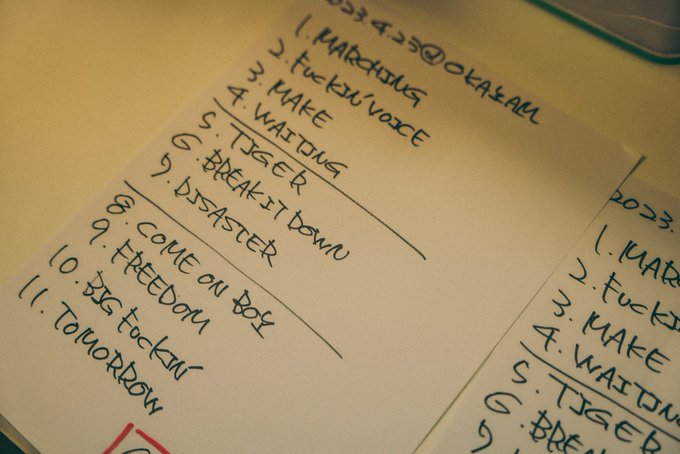 2023.4.23@OKAYAM
1. MARCHING
2. FUCKIN' VOICE
3. MAKE
4. WAITING
5. TIGER
6. BREAK IT DOWN
7. DISASTER
8. COME ON BOY
9. FREEDOM
10. BIG FUCKIN'
11. TOMORROW
2023.
1. MAR
2. FUCKI
3. MAKE
4. WAITIN
5. TIGER
6. BREA
7.